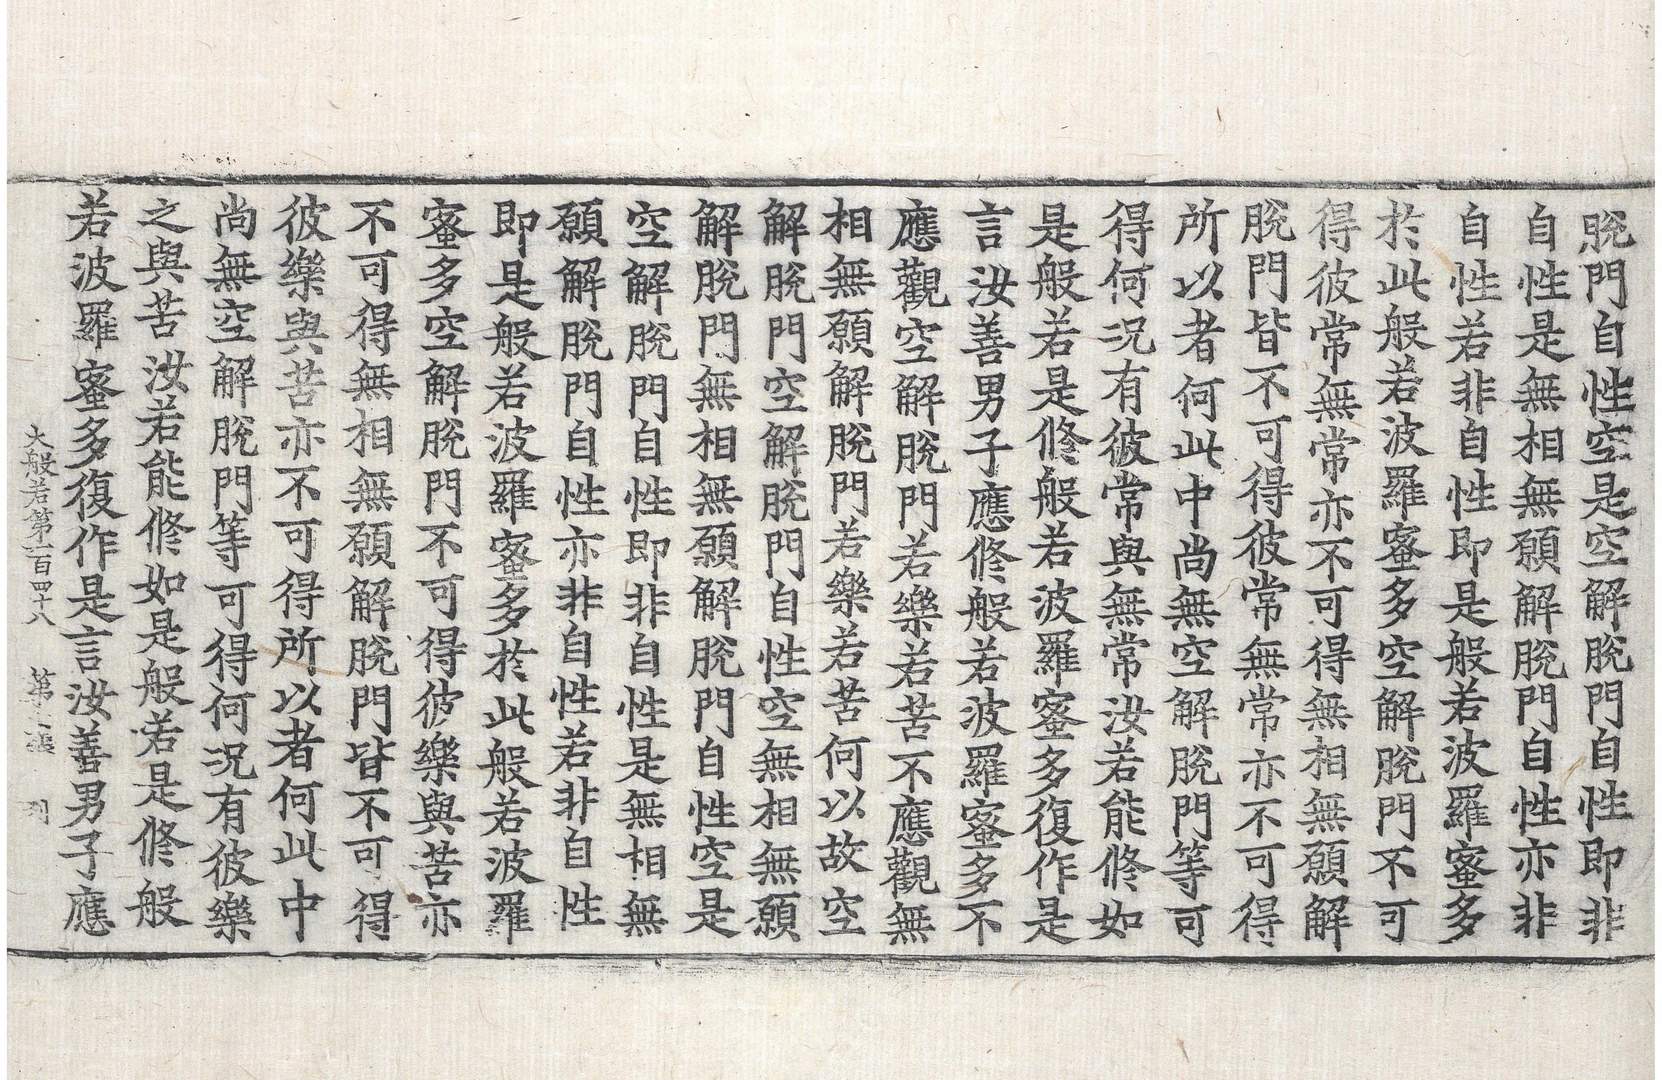 脫門自性空是空解脫門自性即非
自性是無相無願解脫門自性亦非
自性若非自性即是般若波羅蜜多
於此般若波羅蜜多空解脫門不可
得彼常無常亦不可得無相無願解
脫門皆不可得彼常無常亦不可得
所以者何此中尚無空解脫門等可
得何况有彼常與無常汝若能修如
是般若是修般若波羅蜜多復作是
言汝善男子應修般若波羅蜜多不
應觀空解脫門若樂若苦不應觀無
相無願解脫門若樂若苦何以故空
解脫門空解脫門自性空無相無願
解脫門無相無願解脫門自性空是
空解脫門自性即非自性是無相無
願解脫門自性亦非自性若非自性
即是般若波羅蜜多於此般若波羅
蜜多空解脫門不可得彼樂與苦亦
不可得無相無願解脫門皆不可得
彼樂與苦亦不可得所以者何此中
尚無空解脫門等可得何况有彼樂
之與苦汝若能修如是般若是修般
若波羅蜜多復作是言汝善男子應
大般若第一百四十八 第 張 列